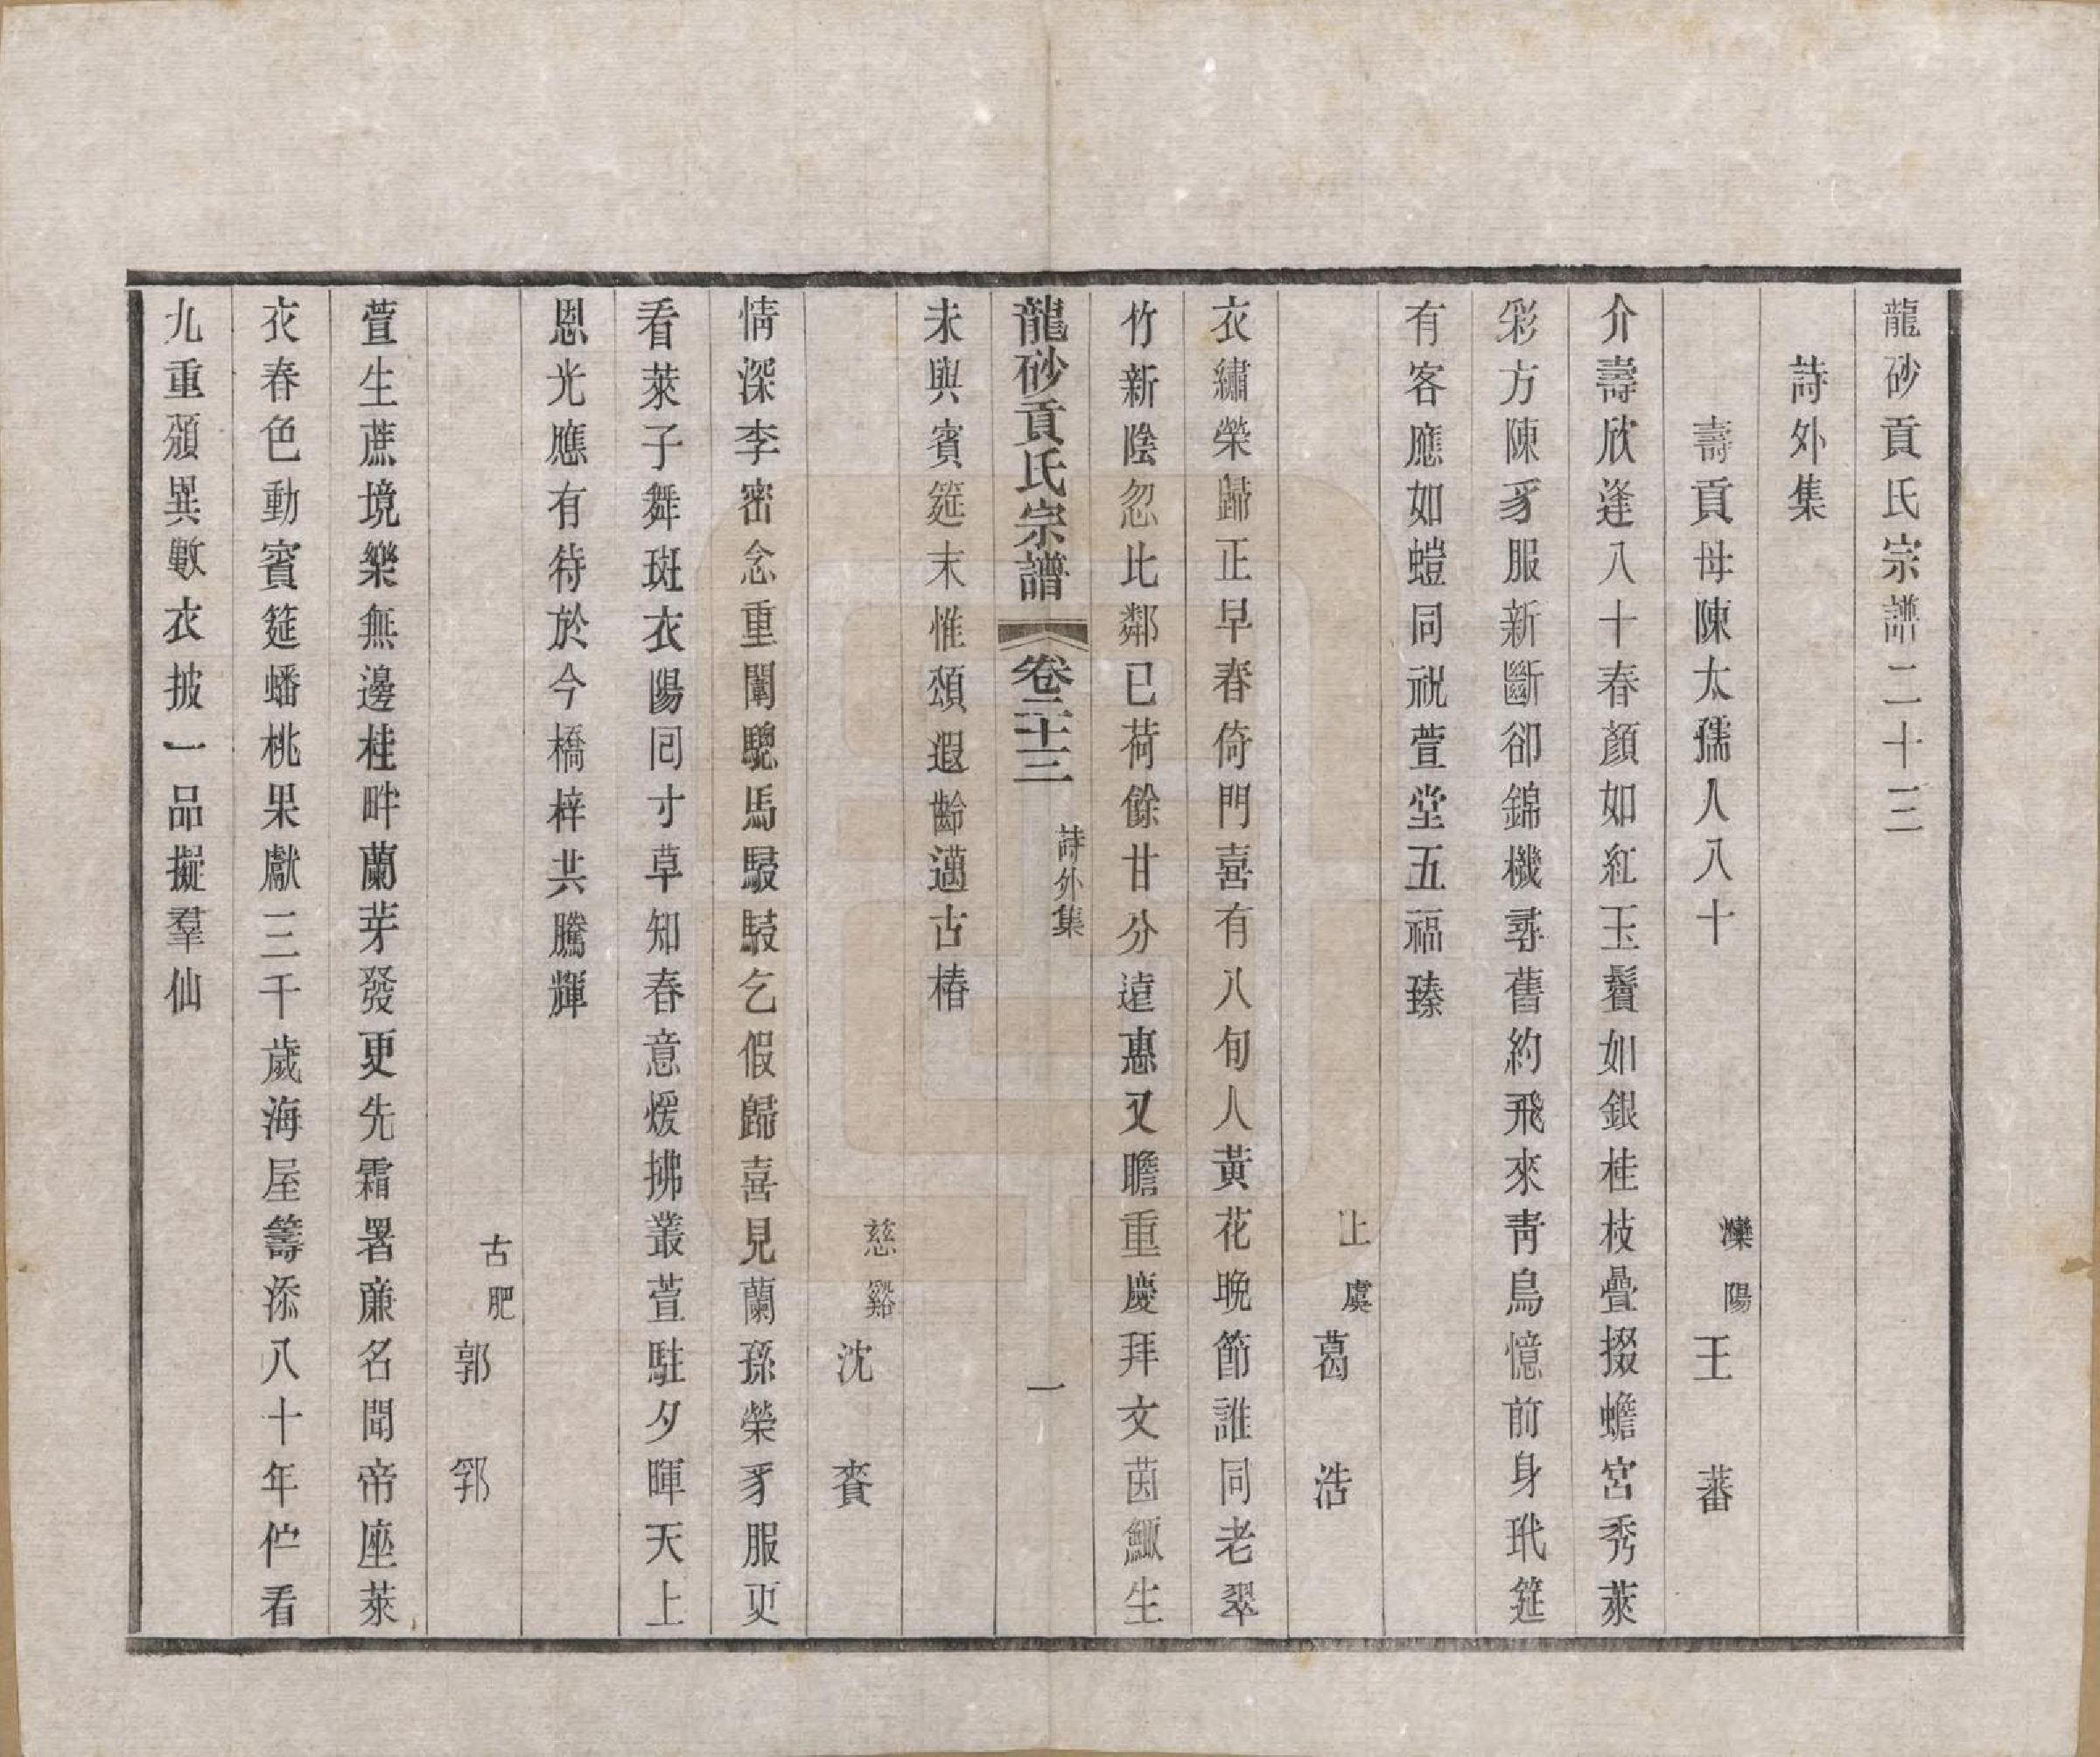 龍砂貢氏宗譜二十三
詩外集
壽貢母陳太孺人八十
灤陽王蕃
介壽欣逢八十春顏如紅玉鬢如銀桂枝疊掇蟾宮秀萊
彩方陳豸服新斷卻錦機尋舊約飛來靑鳥憶前身玳筵
有客應如螘同祝萱堂五福臻
上虞葛浩
衣繡榮歸正早春倚門喜有八旬人黃花晚節誰同老翠
竹新陰忽比鄰已荷餘甘分遠惠又瞻重慶拜文茵鯫生
未與賓筵末惟頌遐齡邁古椿
龍砂貢氏宗譜 卷二十三 詩外集 一
慈谿沈賚
情深李密念重闈驄馬駸駸乞假歸喜見蘭孫榮豸服更
看萊子舞斑衣陽囘寸草知春意煖拂叢萱駐夕暉天上
恩光應有待於今橋梓共騰輝
古肥郭郛
萱生蔗境樂無邊桂畔蘭芽發更先霜署亷名聞帝座萊
衣春色動賓筵蟠桃果獻三千歲海屋籌添八十年伫看
九重頒異數衣披一品擬羣仙